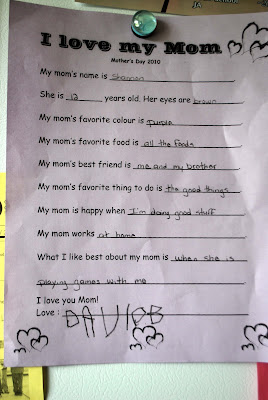 I love my Mom
Mother's Day 2010
My mom's name is Shannon
She is 12 years old. Her eyes are brown
My mom's favorite colour is Purple
My mom's favorite food is all the foods
My mom's best friend is me and my brother
My mom's favorite thing to do is the good things
My mom is happy when I'm doing good stuff
My mom works at home
What I like best about my mom is when she is
playing games with me
I love you Mom!
Love :